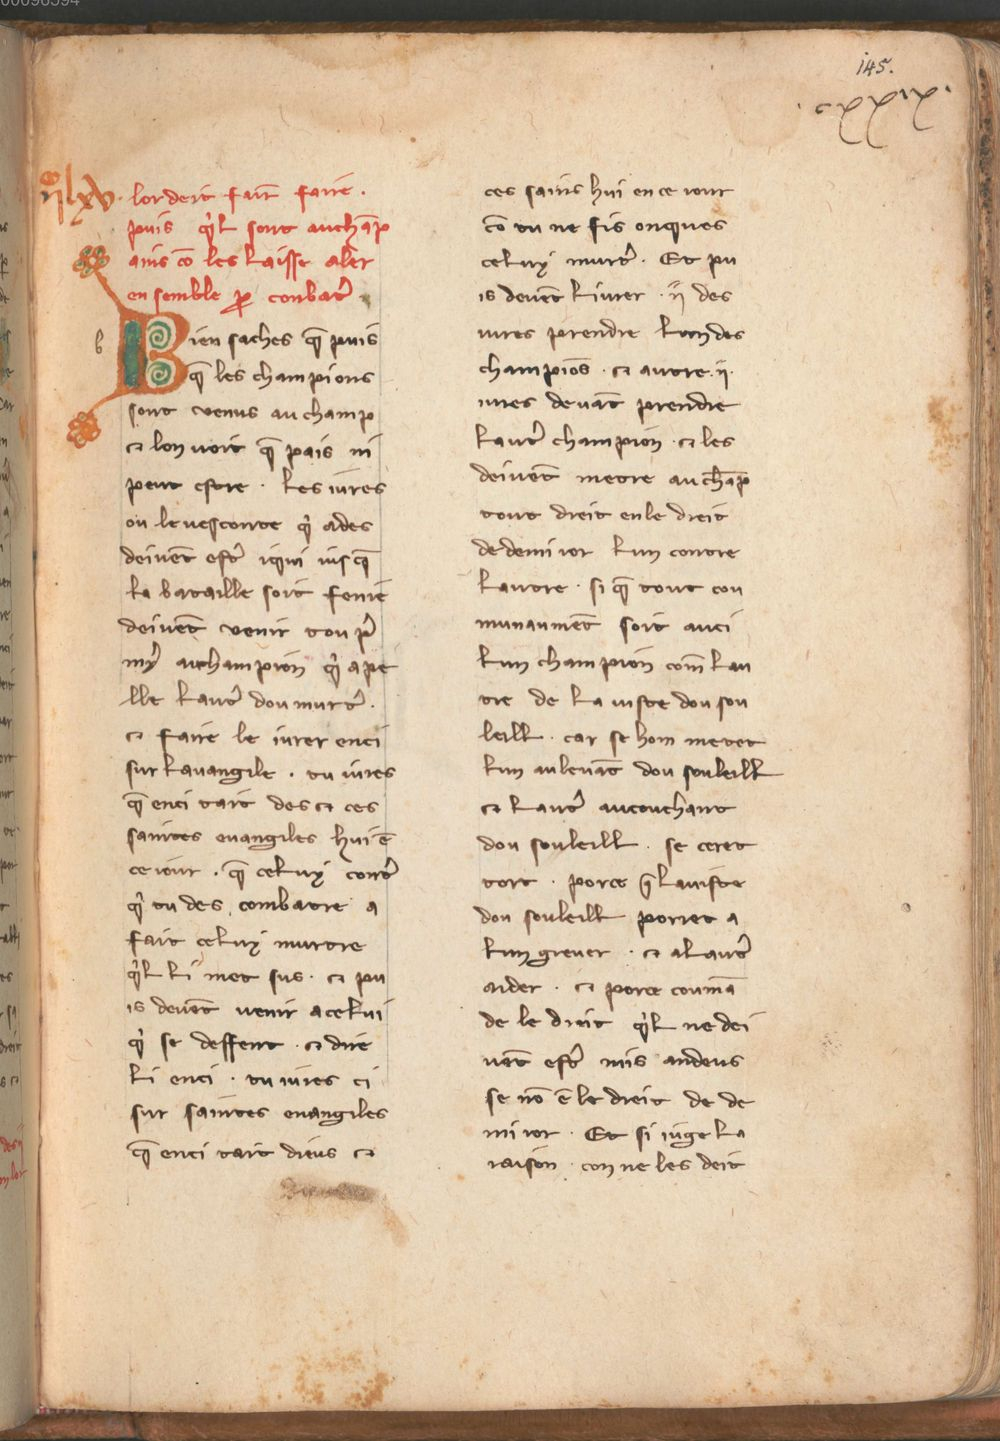 145.
.cxxxix.
ijclxv. lor deit fait faire.
puis q̾l sont au chāp
ains cō les laisse aler
en semble p̱ conbatr̾.
b
Bien saches q̄ puis
q̄ les champions
sont venus au champ
⁊ lon voit q̄ pais ni
peut estre. les iures
ou le vesconte q̾ ades
deivēt estr̾ iqui iusq̄
la bataille soit fenie
deivēt venir tou pr̾
my̾ au champion q̾ ape
lle lautr̾ dou murtr̾.
⁊ faire le iurer enci
sur lavangile. tu iures
q̄ enci tait des ⁊ ces
saintes evangiles hui ē
ce iour. q̄ celuy contr̾
q̾ tu des combatre a
fait celuy murtre
q̾l li met sus. ⁊ pu
is devēt venir a celui
q̾ se deffent. ⁊ dire
li enci. tu iures ci
sur saintes evangiles
q̄ enci tait dieus ⁊
ces sains hui en ce iour
cō tu ne fis onques
celuy murtr̾. Et pu
is devēt livrer .ij. des
iures prendre lun des
champiōs. ⁊ autre .ij.
iures devāt prendre
lautr̾ champion. ⁊ les
deivēt metre au chāp
tout dreit en le dreit
de demi ior lun contre
lautre. si q̄ tout cou
munaumēt soit auci
lun champion com̄ lau
tre de la viste dou sou
leill. car se hom metet
lun au levāt dou souleill
⁊ lautr̾ au couchant
dou souleill. se ceret
tort. porce q̄ la viste
dou souleill porret a
lun grever. ⁊ a lautr̾
aider. ⁊ porce coumā
de le dreit q̾l ne dei
vēt estr̾ mis andeus
se nō ē le dreit de de
mi ior. Et si iuge la
raison. con ne les deit